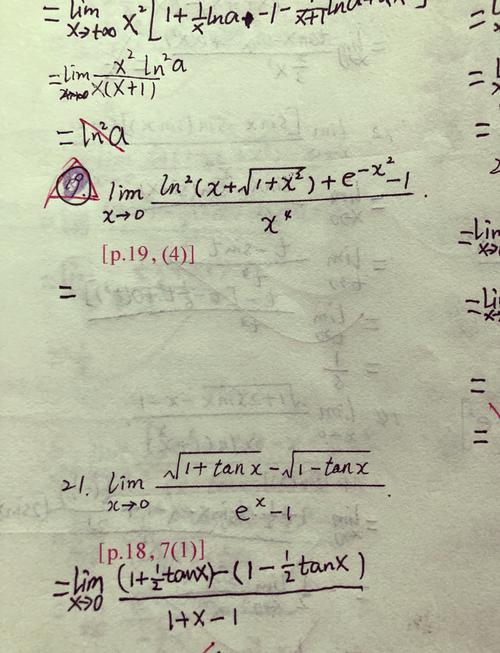 = lim x→+∞ x² [ 1 + 1/x lna - 1 - 1/(x+1) lna
= lim x→+∞ x² ln²a / x(x+1)
= ln²a
19. lim x→0 (ln²(x+√(1+x²)) + e^(-x²) - 1) / x⁴ .
[p.19, (4)]
=
21. lim x→0 (√(1+tanx) - √(1-tanx)) / (e^x - 1) .
[p.18, 7(1)]
= lim x→0 ((1+½tanx) - (1-½tanx)) / (1+x-1)